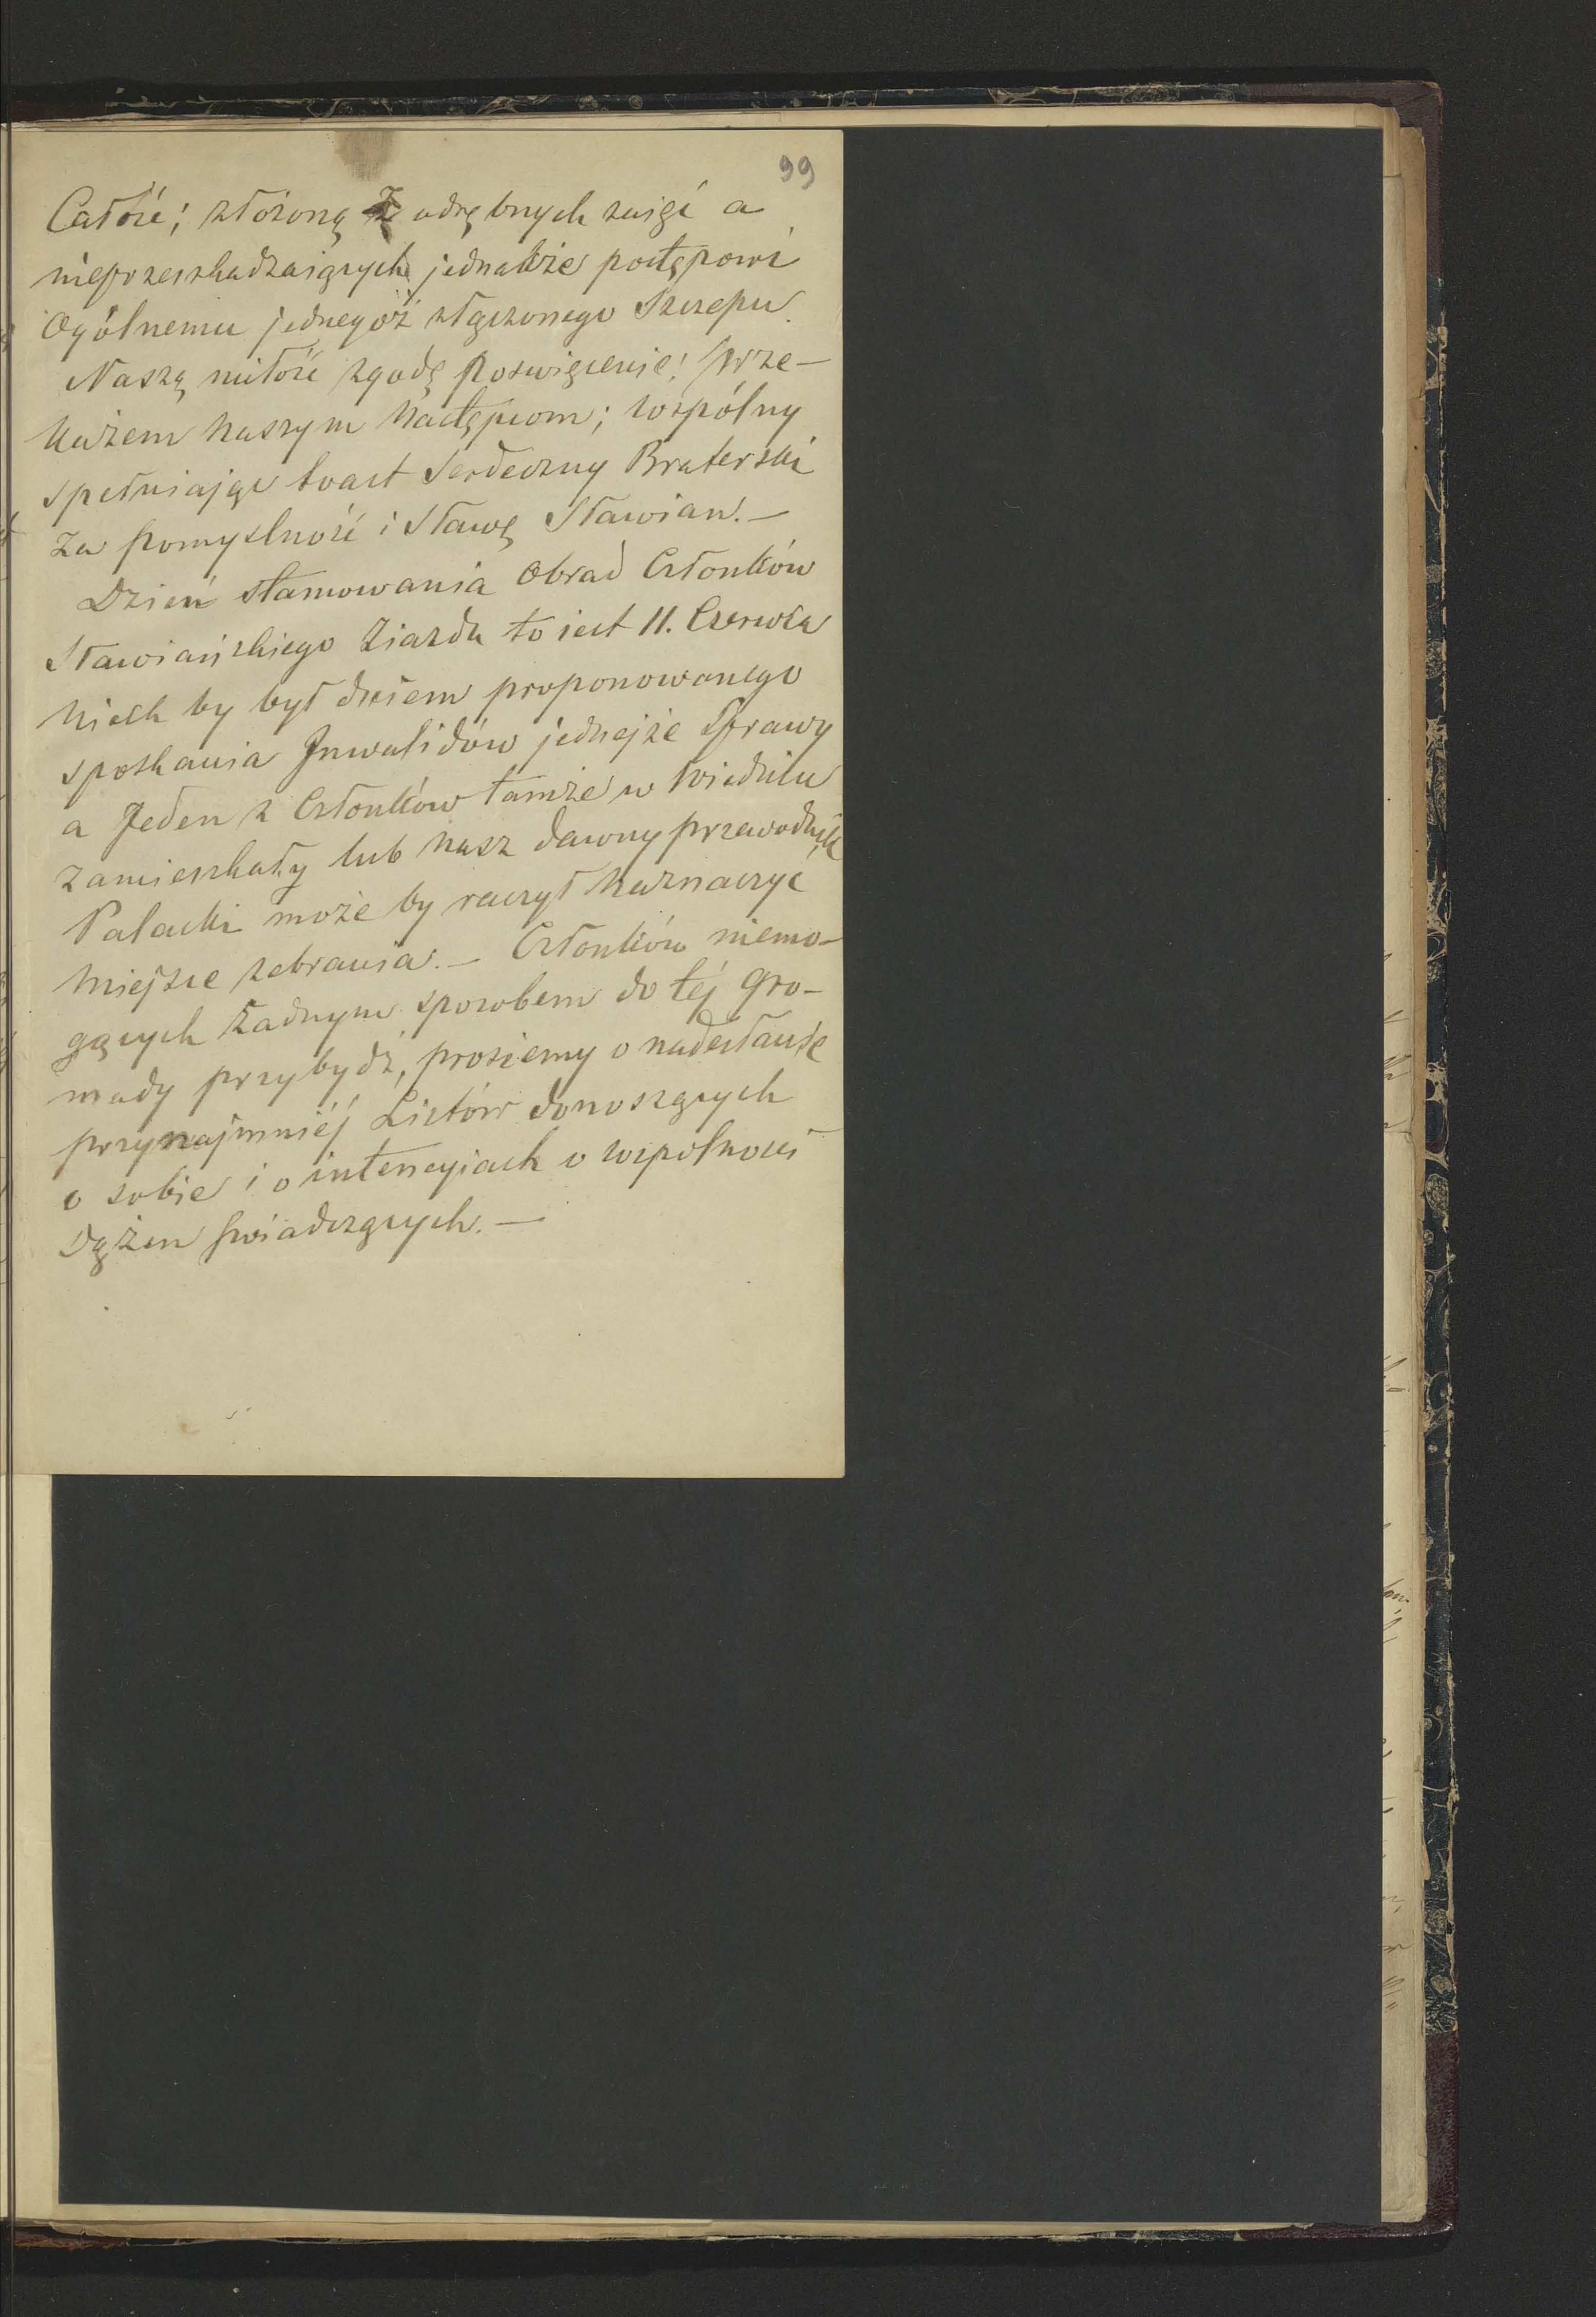 99
Całość; złożoną z odrębnych zajęć a
nieprzeszkadzaiących jednakże postępowi
Ogólnemu jednegoż złączonego Szczepu.
Naszą miłość zgodę poswięcenie! prze-
każem naszym następcom; wspólny
spełniając toast Serdeczny Braterski
za pomyslność i Sławę Sławian. —
Dzień stamowania Obrad Członków
Sławiańskiego Ziazdu to iest 11. Czerwca
niech by był dniem proponowanego
spotkania Inwalidów jednejże Sprawy
a Jeden z Członków tamże w Wiedniu
zamieszkały lub nasz dawny przewodnik
Palacki może by raczył naznaczyć
miejsce zebrania. — Członków niemo-
gących żadnym sposobem do téj gro-
mady przybydź, prosiemy o nadesłanie
przynajmniéj Listów donoszących
o sobie i o intencyiach o wspólności
Dążen świadczących. —